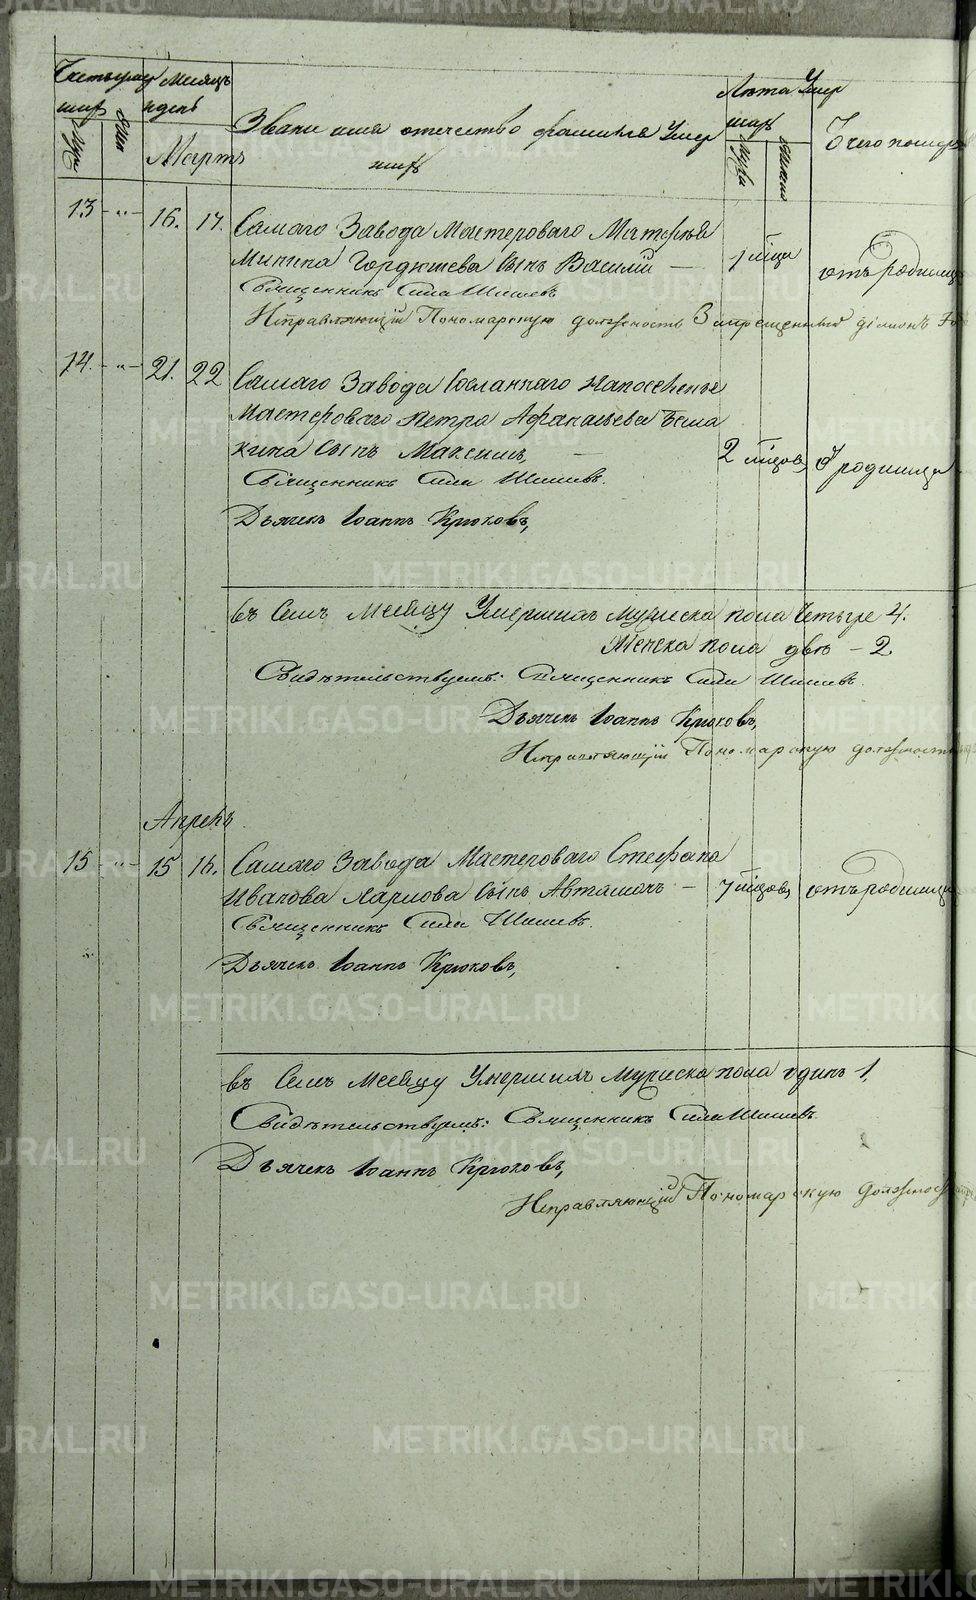 Счетъ умер Месяцъ
ших и день
Муж Жен
Мартъ
Звание имя отечество фамилия Умер
ших
Лѣта Умер
ших
Мужа Женска
От чего померъ
13 -"- 16. 17. Самаго Завода Мастероваго Матфея
Минина Гордюшева Сынъ Василий — 1 мѣца отъ родимца
Священникъ Сила Шишевъ
Исправляющий Пономарскую должность Запрещенный діаконъ
14. -"- 21. 22 Самаго Завода Сосланнаго На поселенье
Мастероваго Петра Афанасьева
кина Сынъ Максимъ — 2 мѣцов, От родимца
Священникъ Сила Шишевъ.
Дьячекъ Іоаннъ Крюковъ,
въ Семъ Месяцу Умерших Мужеска пола Четыре 4.
Женска пола две – 2.
Свидѣтельствуемъ: Священникъ Сила Шишевъ.
Дьячекъ Іоаннъ Крюковъ,
Исправляющій Пономарскую должность
Апрель
15 -"- 15 16. Самаго Завода Мастероваго Стефана
Иванова Ларнова Сынъ Автамонъ — 7 мѣцов, отъ родимца
Священникъ Сила Шишевъ.
Дьячекъ Іоаннъ Крюковъ,
въ Семъ Месяцу Умерших Мужеска пола одинъ 1,
Свидѣтельствуемъ: Священникъ Сила Шишевъ
Дьячекъ Іоаннъ Крюковъ,
Исправляющій Пономарскую должность
METRIKI.GASO-URAL.RU